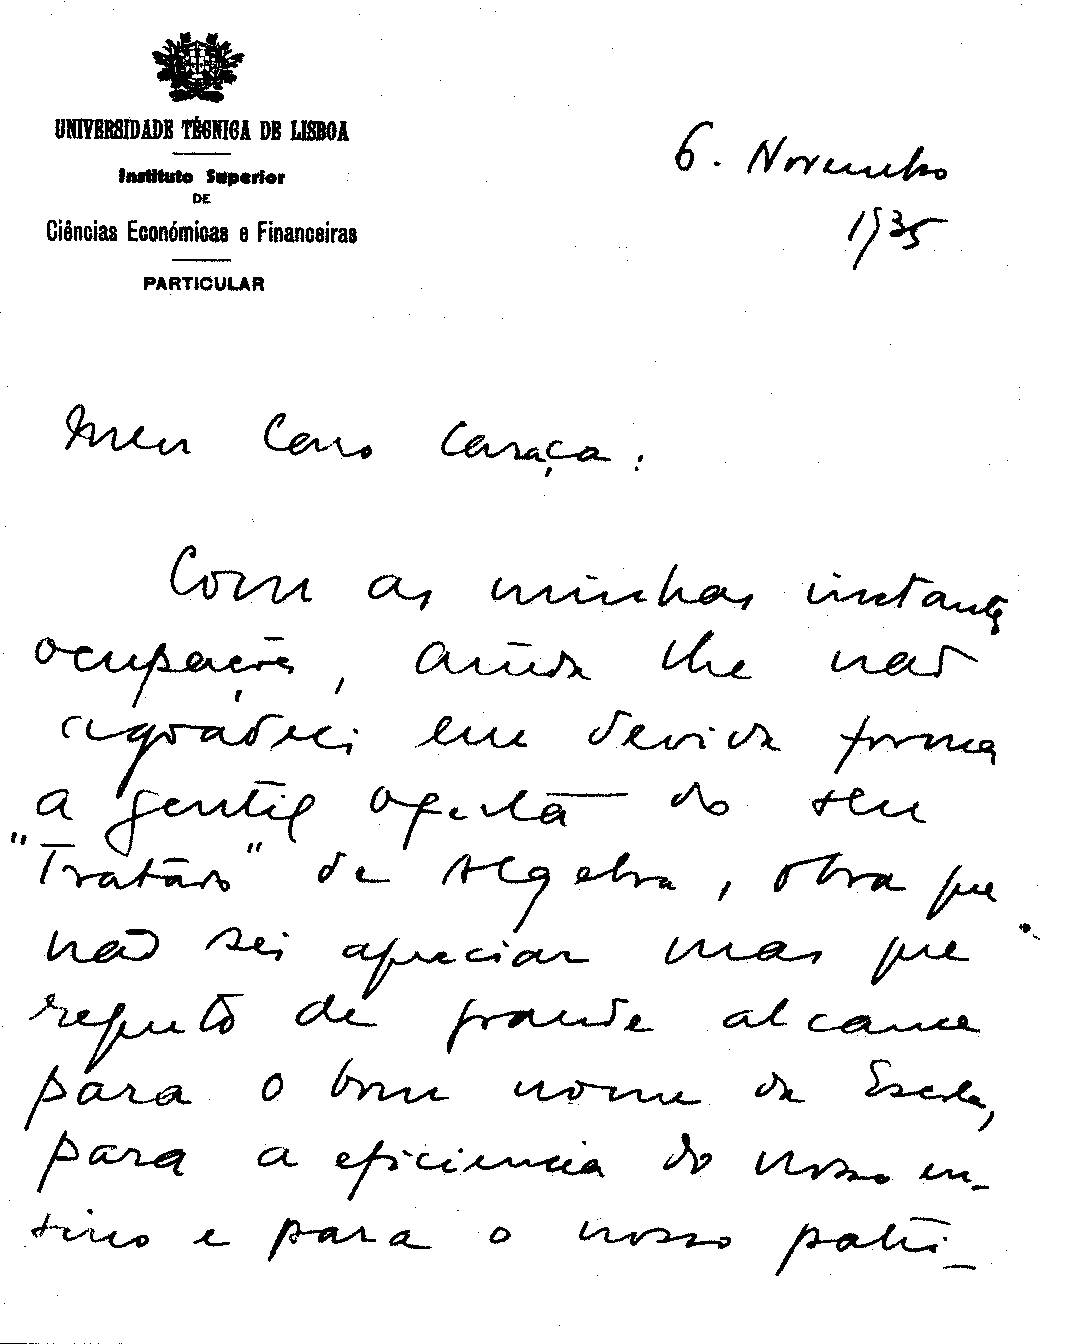 UNIVERSIDADE TÉCNICA DE LISBOA
Instituto Superior
DE
Ciências Económicas e Financeiras
PARTICULAR
6. Novembro
1935
Meu Caro Caraça:
Com as minhas instantes
ocupações, ainda lhe não
agradeci em devida forma
a gentil oferta do seu
"Tratado" de Algebra, obra que
não sei apreciar mas que
reputo de grande alcance
para o bom nome da Escola,
para a eficiencia do nosso en-
sino e para o nosso patri-